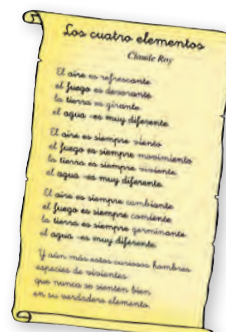 Los cuatro elementos
Claude Roy
El aire es refrescante
el fuego es devorante
la tierra es girante
el agua -es muy diferente.
El aire es siempre viento
el fuego es siempre movimiento
la tierra es siempre viviente
el agua -es muy diferente.
El aire es siempre cambiante
el fuego es siempre comiente
la tierra es siempre germinante
el agua -es muy diferente.
Y aún más estos curiosos hombres
especies de vivientes
que nunca se sienten bien
en su verdadero elemento.